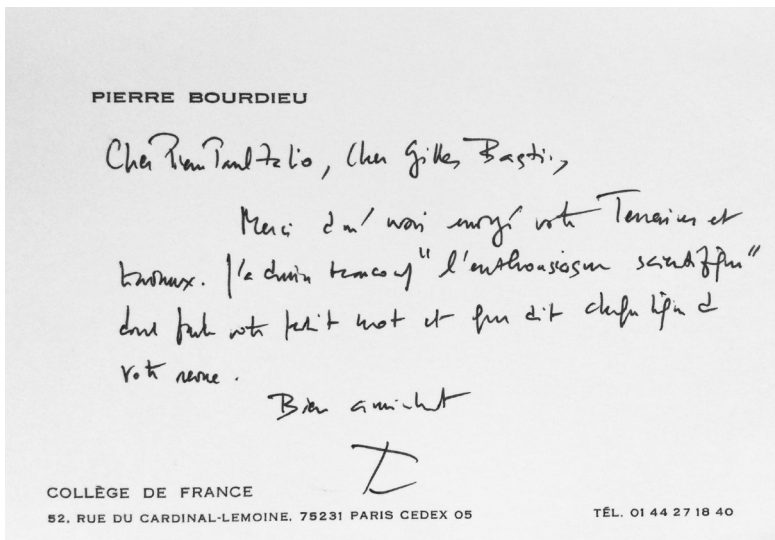 PIERRE BOURDIEU
Cher Pierre Paul Zalio, Cher Gilles Bastin,
Merci de m'avoir envoyé votre Terrains et
travaux. J'admire beaucoup "l'enthousiasme scientifique"
dont parle votre petit mot et que dit chaque ligne de
votre revue.
Bien amicalement
COLLÈGE DE FRANCE
52, RUE DU CARDINAL-LEMOINE, 75231 PARIS CEDEX 05
TÉL. 01 44 27 18 40